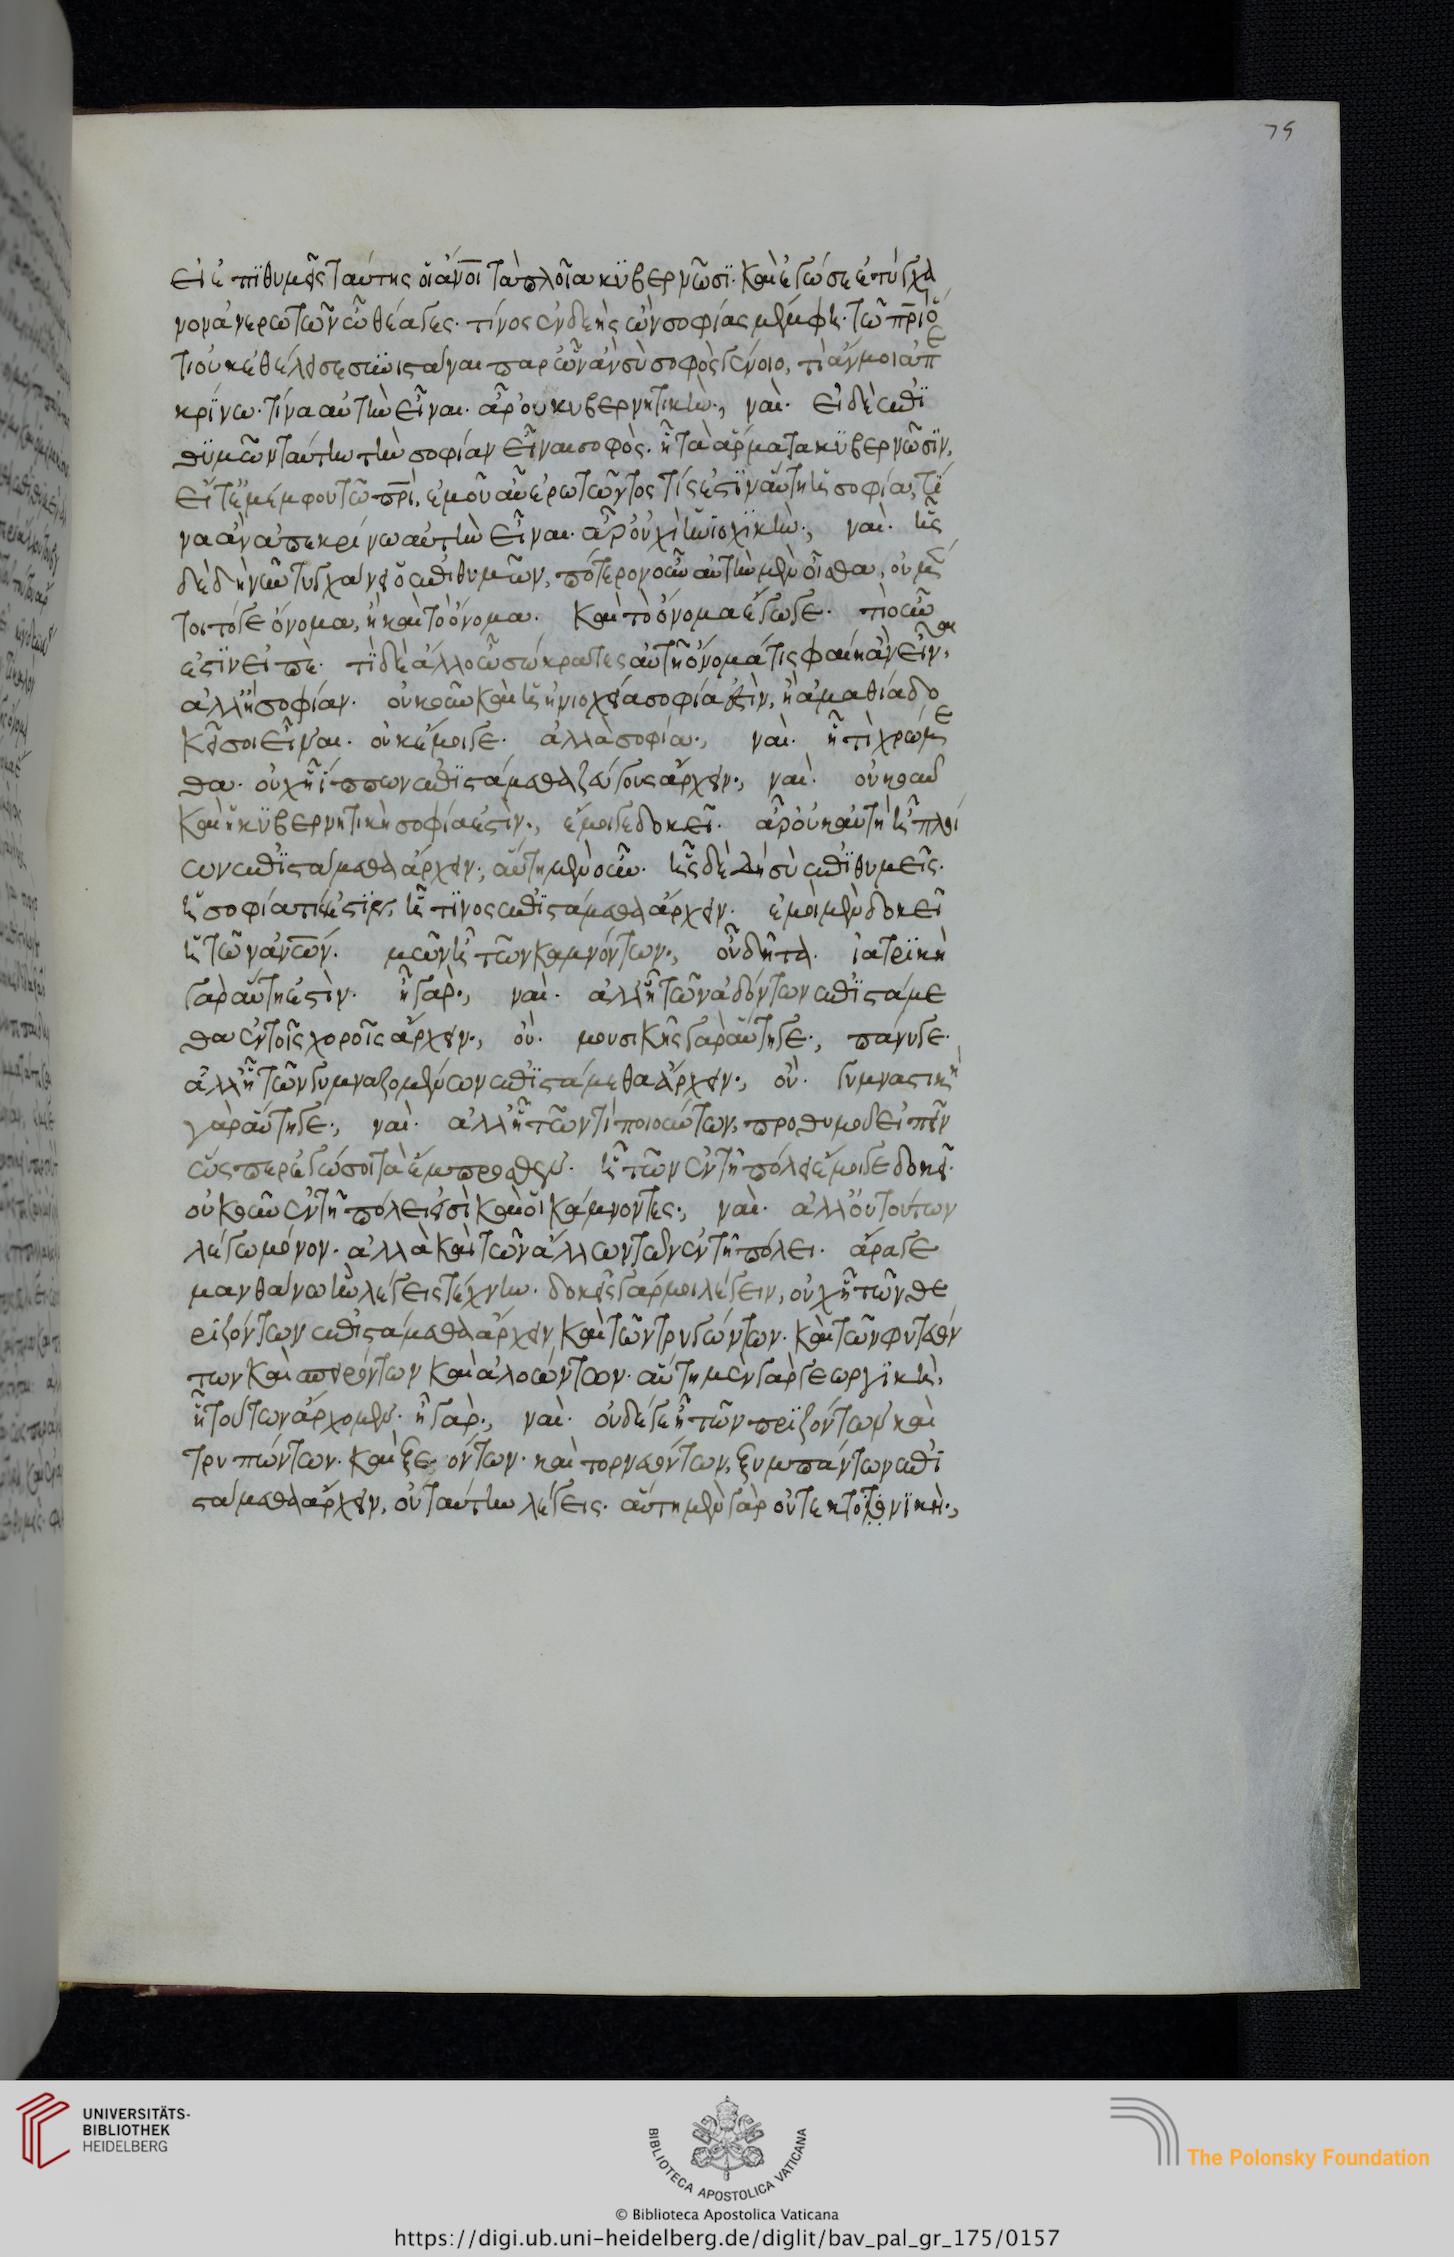 εἰ ἐπϊθυμεῖς ταύτης οἱ ἄνοι τὰ πλοῖα κϋβερνῶσϊ· καὶ ἐγώ σε ἐτύγχα
νον ἀνερωτῶν ὦ θέαγες· τίνος ἐνδεὴς ὢν σοφίας μέμφη· τῶ πρὶ ὅ
τι οὐκ ἐθέλει σε συνιστάναι παρ' ὧν ἂν σὺ σοφὸς γένοιο, τί ἄν μοι ἀπε
κρίνω· τίνα αὐτὴν εἶναι· ἆρ' οὐ κυβερνητικήν·, ναί· εἰ δὲ ἐπϊ
θϋμῶν ταύτην τὴν σοφίαν εἶναι σοφὸς· ᾗ τὰ ἅρματα κϋβερνῶσϊν,
εἶτ' ἐμέμφου τῶ πρὶ, ἐμοῦ ἂν ἐρωτῶντος τίς ἐστὶν αὕτη ἡ σοφία, τί
να ἂν ἀπεκρίνω αὐτὴν εἶναι· ἆρ' οὐχὶ ἡνϊοχϊκήν·, ναί· ἧς
δὲ δὴ νῦν τυγχάνεις ἐπιθυμῶν, πότερον οὖν αὐτὴν μὲν οἶσθα, οὐ μέν
τοι τόδε ὄνομα, ἢ καὶ τὸ ὄνομα· καὶ τὸ ὄνομα ἔγωγε· τί οὖν
ἐστὶν εἰπέ· τί δὲ ἄλλο ὦ σώκρατες αὐτῆ ὄνομά τις φαίη ἂν εἶναι
ἀλλ' ἢ σοφίαν· οὐκοῦν καὶ ἡ ἡνιοχεία σοφία ἐστὶν, ἢ ἀμαθία δο
κεῖ σοι εἶναι· οὐκ ἔμοιγε· ἀλλὰ σοφία·, ναί· ᾗ τί χρώμε
θα· οὐχ ᾗ ἵππων ἐπϊστάμεθα ζεύγους ἄρχειν·, ναί· οὐκοῦν
καὶ ἡ κϋβερνητικὴ σοφία ἐστὶν·, ἔμοιγε δοκεῖ· ἆρ' οὐκ αὐτὴ ᾗ πλοί
ων ἐπϊστάμεθα ἄρχειν·, αὕτη μὲν οὖν· ἧς δὲ δὴ σὺ ἐπϊθυμεῖς·
ἡ σοφία τίς ἐστϊν, ᾗ τϊνος ἐπϊστάμεθα ἄρχειν· ἐμοὶ μὲν δοκεῖ
ᾗ τῶν ἀνῶν· μῶν ᾗ τῶν καμνόντων·, οὐ δῆτα· ἰατρϊκὴ
γὰρ αὕτη ἐστὶν· ἦ γὰρ·, ναί· ἀλλ' ᾗ τῶν ἀδόντων ἐπϊστάμε
θα ἐν τοῖς χοροῖς ἄρχειν·, οὔ· μουσικῆς γὰρ αὕτη γε·, πάνυ γε·
ἀλλ' ᾗ τῶν γυμναζομένων ἐπϊστάμεθα ἄρχειν·, οὔ· γυμναστικὴ
γὰρ αὕτη γε·, ναί· ἀλλ' ᾗ τῶν τί ποιούντων, προθυμοῦ εἰπεῖν
ὥσπερ ἐγώ σοι τὰ ἔμπροσθεν· ᾗ τῶν ἐν τῆ πόλει ἔμοιγε δοκεῖ·
οὐκοῦν ἐν τῆ πόλει εἰσὶ καὶ οἱ κάμνοντες·, ναί· ἀλλ' οὐ τούτων
λέγω μόνον· ἀλλὰ καὶ τῶν ἄλλων τῶν ἐν τῆ πόλει· ἆρά γε
μανθάνω ἣν λέγεις τέχνην· δοκεῖς γάρ μοι λέγειν, οὐχ ᾗ τῶν θε
ριζόντων ἐπϊστάμεθα ἄρχειν καὶ τῶν τρυγώντων· καὶ τῶν φυτευόν
των καὶ σπειρόντων καὶ ἀλοώντων· αὕτη μὲν γὰρ γεωργϊκὴ,
ᾗ τούτων ἄρχομεν· ἦ γὰρ·, ναί· οὐδέ γε ᾗ τῶν πρϊζόντων καὶ
τρυπώντων· καὶ ξεόντων· καὶ τορνευόντων, ξυμπάντων ἐπϊ
στάμεθα ἄρχειν, οὐ ταύτην λέγεις· αὕτη μὲν γὰρ οὐ τεκτονϊκὴ·,
75
UNIVERSITÄTS-
BIBLIOTHEK
HEIDELBERG
BIBLIOTECA APOSTOLICA VATICANA
The Polonsky Foundation
© Biblioteca Apostolica Vaticana
https://digi.ub.uni-heidelberg.de/diglit/bav_pal_gr_175/0157